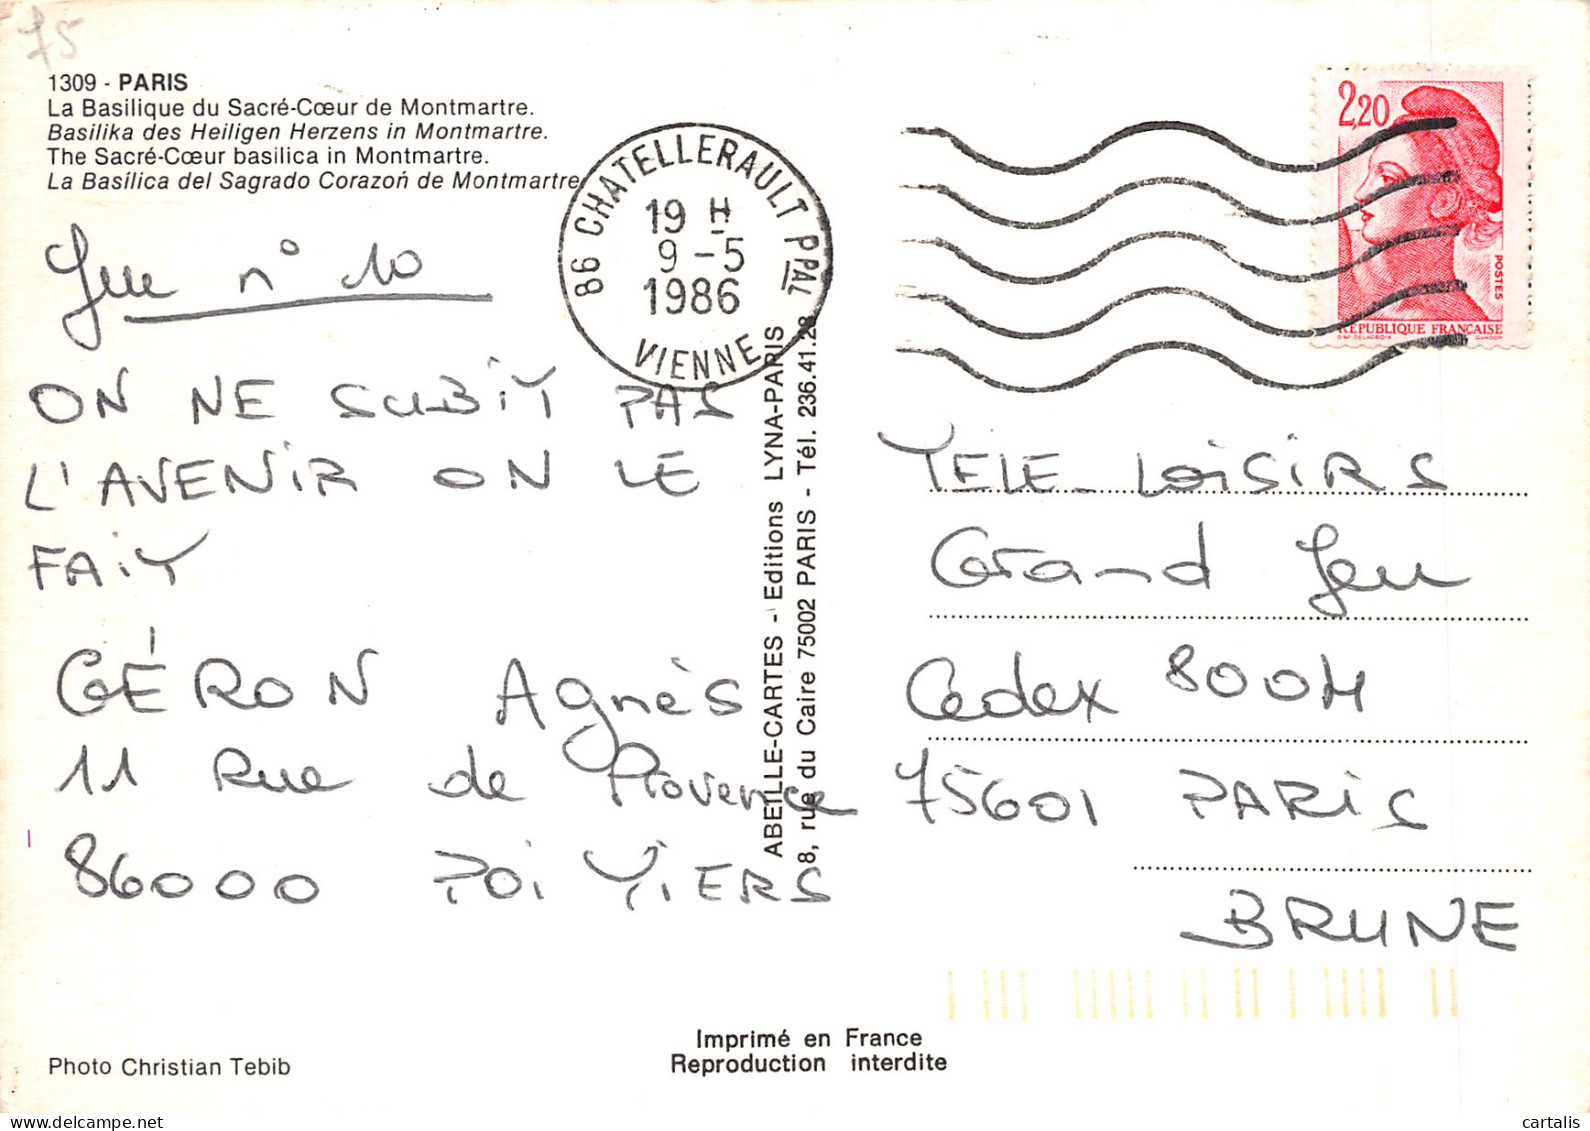 75
1309 - PARIS
La Basilique du Sacré-Cœur de Montmartre.
Basilika des Heiligen Herzens in Montmartre.
The Sacré-Cœur basilica in Montmartre.
La Basílica del Sagrado Corazoń de Montmartre
86 CHATELLERAULT PPAL
19 H
9 - 5
1986
VIENNE
2,20
POSTES
REPUBLIQUE FRANÇAISE
D'AP DELACROIX GANDON
Jeu n° 10
ON NE SUBIT PAS
L'AVENIR ON LE
FAIT
GÉRON Agnès
11 Rue de Provence
86000 POITIERS
ABEILLE-CARTES - Editions LYNA-PARIS
8, rue du Caire 75002 PARIS - Tél. 236.41.28
TELE-LOISIRS
Grand Jeu
Cedex 800M
75601 PARIS
BRUNE
Imprimé en France
Reproduction interdite
Photo Christian Tebib
cartalis